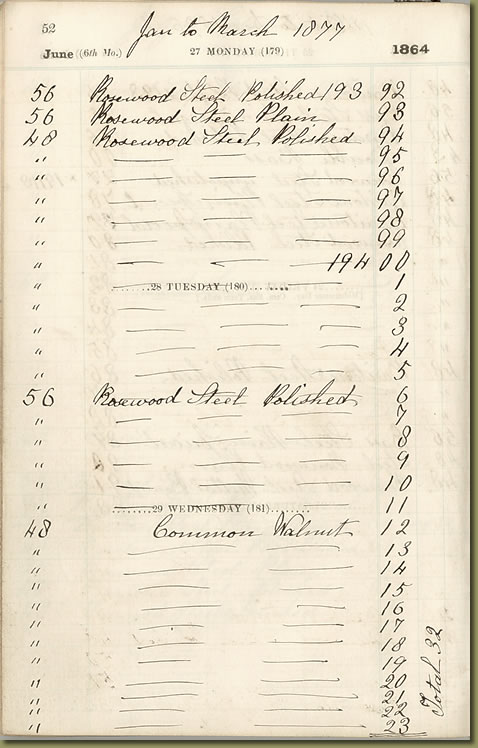 52 Jan to March 1877
June (6th Mo.) 27 MONDAY (179) 1864
56 Rosewood Steel Polished 193 92
56 Rosewood Steel Plain 93
48 Rosewood Steel Polished 94
" — — — 95
" — — — 96
" — — — 97
" — — — 98
" — — — 99
" — — — 194 00
" 1
........28 TUESDAY (180)........
" — — — 2
" — — — 3
" — — — 4
" — — — 5
56 Rosewood Steel Polished 6
" — — — 7
" — — — 8
" — — — 9
" — — — 10
" — — — 11
........29 WEDNESDAY (181)........
48 Common Walnut 12
" — — 13
" — — 14
" — — 15
" — — 16
" — — 17
" — — 18
" — — 19
" — — 20
" — — 21
" — — 22
" — — 23
Total 32